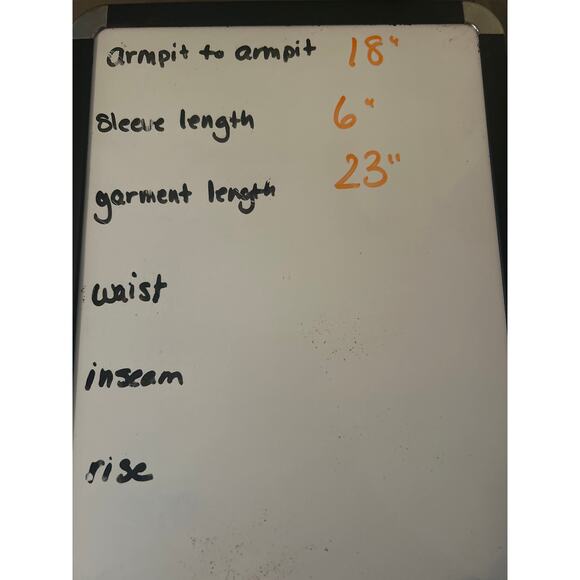 armpit to armpit 18"
sleeve length 6"
garment length 23"
waist
inseam
rise